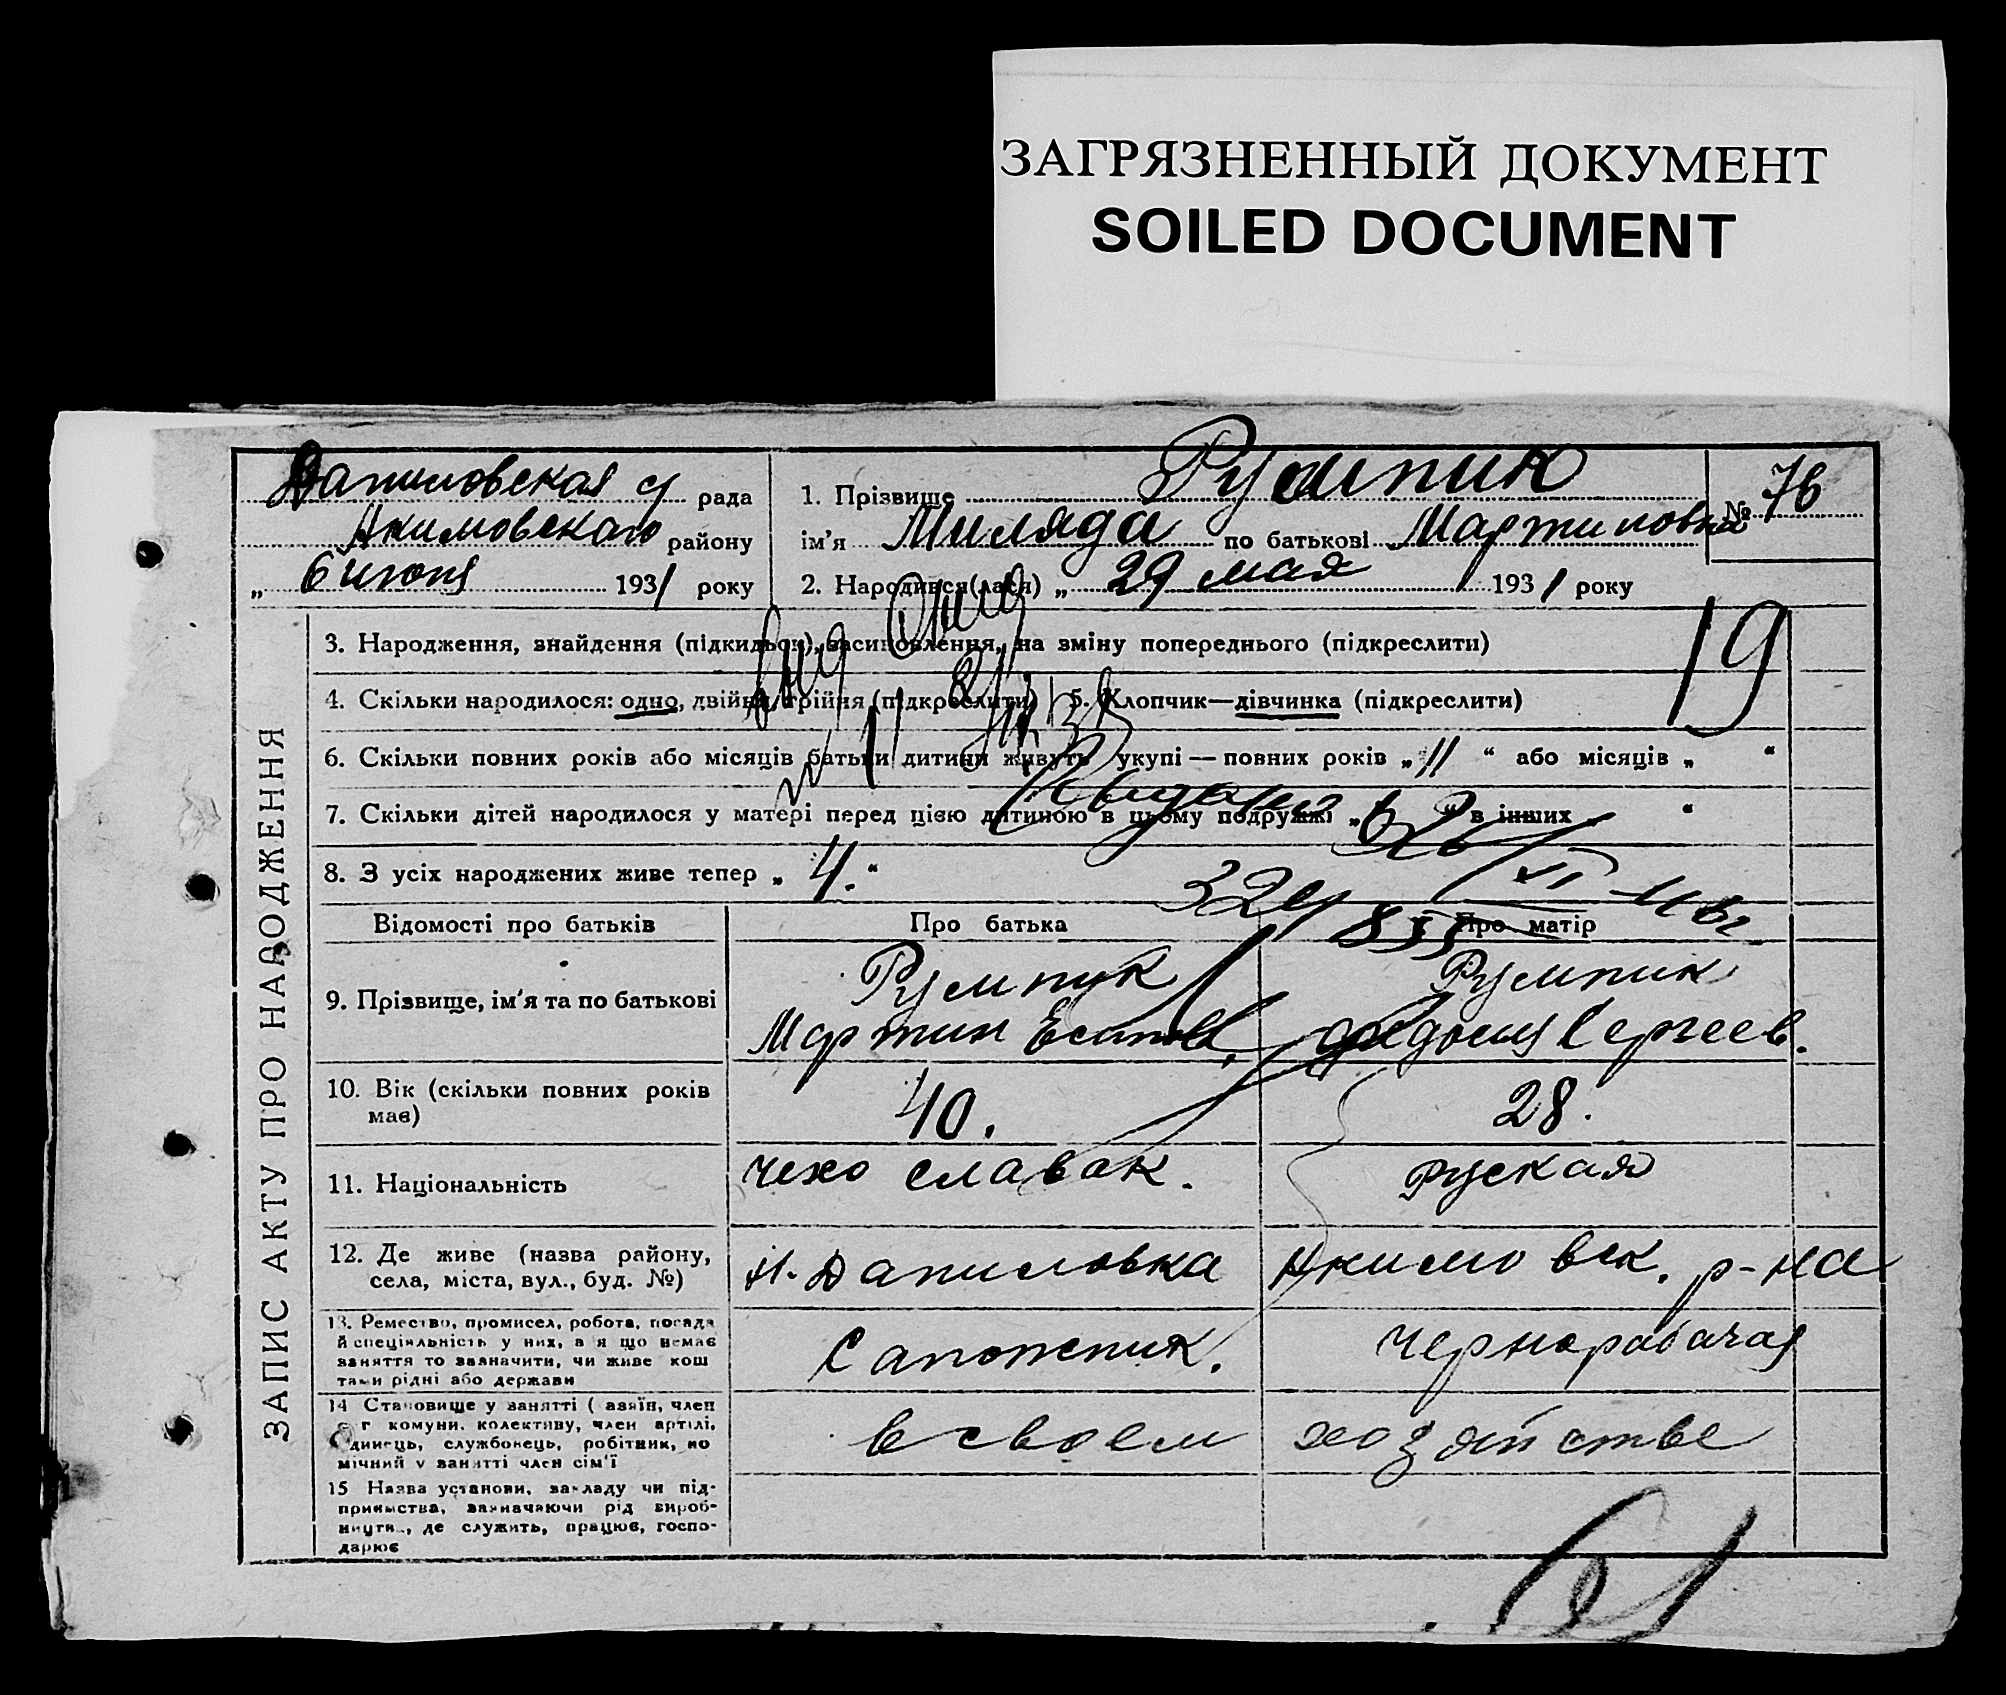 ЗАГРЯЗНЕННЫЙ ДОКУМЕНТ
SOILED DOCUMENT
Даниловская с/ рада
Акимовского району
„ 6 июня 1931 року
1. Прізвище Румпик
№ 76
ім'я Миляда по батькові Мартиновна
2. Народився(лася) „ 29 мая 1931 року
19
ЗАПИС АКТУ ПРО НАРОДЖЕННЯ
3. Народження, знайдення (підкидьок), засиновлення, на зміну попереднього (підкреслити)
4. Скільки народилося: одно, двійня, трійня (підкреслити) 5. Клопчик—дівчинка (підкреслити)
6. Скільки повних років або місяців батьки дитини живуть укупі — повних років „ 11 “ або місяців „ “
7. Скільки дітей народилося у матері перед цією дитиною в цьому подружжі „ 6 “ в інших „ “
8. З усіх народжених живе тепер „ 4. “
Відомості про батьків Про батька Про матір
9. Прізвище, ім'я та по батькові
Румпик Румпик
Мартин Есипов. Федосия Сергеев.
10. Вік (скільки повних років має)
40. 28.
11. Національність чехо славак. Руская
12. Де живе (назва району,
села, міста, вул., буд. №)
Н. Даниловка Акимовск. р-на
13. Ремество, промисел, робота, посада
й спеціяльність у них, а я що немає
заняття то зазначити, чи живе кош
тами рідні або держави
Сапожник. Чернорабачая
14 Становище у занятті ( азяїн, член
с г комуни, колективу, член артілі,
одинець, службовець, робітник, по
мічний у занятті член сім'ї
в своем хозяйстве
15 Назва установи, закладу чи під-
приємства, зазначаючи рід вироб-
ництв., де служить, працює, госпо-
дарює